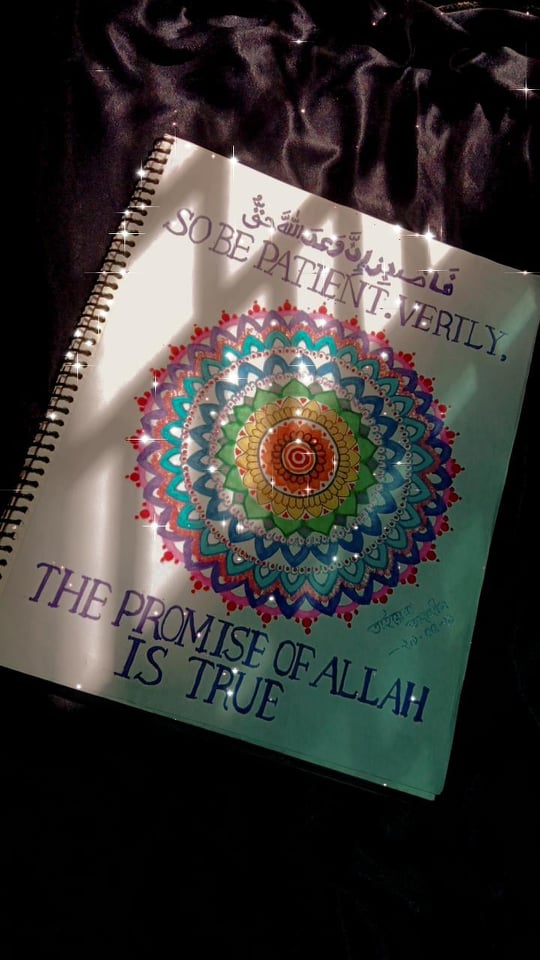 فَاصْبِرْ إِنَّ وَعْدَ اللَّهِ حَقٌّ
SO BE PATIENT. VERILY,
THE PROMISE OF ALLAH
IS TRUE